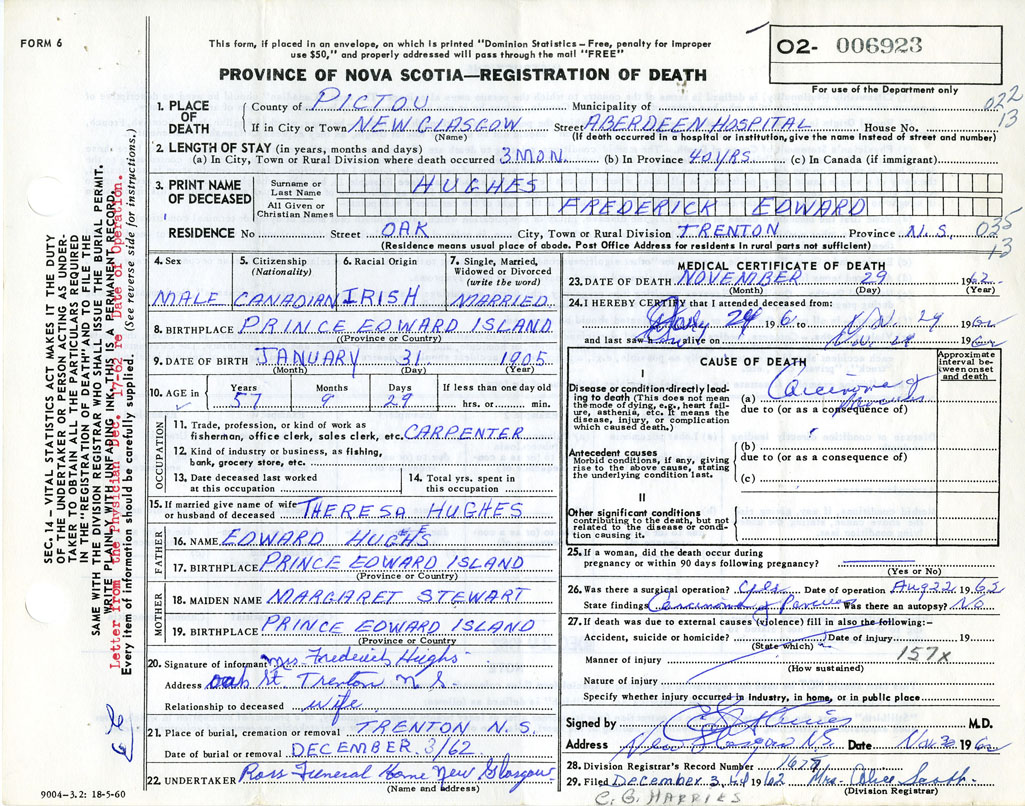 FORM 6
This form, if placed in an envelope, on which is printed "Dominion Statistics – Free, penalty for improper
use $50," and properly addressed will pass through the mail "FREE"
PROVINCE OF NOVA SCOTIA—REGISTRATION OF DEATH
O2- 006923
For use of the Department only
022
13
1. PLACE OF DEATH
County of PICTOU Municipality of
If in City or Town NEW GLASGOW Street ABERDEEN HOSPITAL House No.
(Name) (If death occurred in a hospital or institution, give the name instead of street and number)
2. LENGTH OF STAY (in years, months and days)
(a) In City, Town or Rural Division where death occurred 3 MON. (b) In Province 40 YRS (c) In Canada (if immigrant)
3. PRINT NAME OF DECEASED
Surname or Last Name HUGHES
All Given or Christian Names FREDERICK EDWARD
RESIDENCE No Street OAK City, Town or Rural Division TRENTON Province N.S.
035
13
(Residence means usual place of abode. Post Office Address for residents in rural parts not sufficient)
4. Sex 5. Citizenship (Nationality) 6. Racial Origin 7. Single, Married, Widowed or Divorced (write the word)
MALE CANADIAN IRISH MARRIED
8. BIRTHPLACE PRINCE EDWARD ISLAND
(Province or Country)
9. DATE OF BIRTH JANUARY 31 1905
(Month) (Day) (Year)
10. AGE in Years Months Days If less than one day old
57 9 29 hrs. or min.
OCCUPATION
11. Trade, profession, or kind of work as
fisherman, office clerk, sales clerk, etc. CARPENTER
12. Kind of industry or business, as fishing,
bank, grocery store, etc.
13. Date deceased last worked at this occupation
14. Total yrs. spent in this occupation
15. If married give name of wife or husband of deceased THERESA HUGHES
FATHER
16. NAME EDWARD HUGHES
17. BIRTHPLACE PRINCE EDWARD ISLAND
(Province or Country)
MOTHER
18. MAIDEN NAME MARGARET STEWART
19. BIRTHPLACE PRINCE EDWARD ISLAND
(Province or Country
20. Signature of informant Mrs Frederick Hughs
Address Oak St. Trenton N S.
Relationship to deceased wife
21. Place of burial, cremation or removal TRENTON N.S.
Date of burial or removal DECEMBER 3/62
22. UNDERTAKER Ross Funeral Home New Glasgow
(Name and address)
9004-3.2: 18-5-60
MEDICAL CERTIFICATE OF DEATH
23. DATE OF DEATH NOVEMBER 29 1962
(Month) (Day) (Year)
24. I HEREBY CERTIFY that I attended deceased from:
29 196 to 29 1962
and last saw alive on Nov. 29 1962
CAUSE OF DEATH
Approximate interval between onset and death
I
Disease or condition directly leading to death (This does not mean the mode of dying, e.g., heart failure, asthenia, etc. It means the disease, injury, or complication which caused death.)
(a) Carcinoma of
due to (or as a consequence of)
Antecedent causes
Morbid conditions, if any, giving rise to the above cause, stating the underlying condition last.
(b)
due to (or as a consequence of)
(c)
II
Other significant conditions
contributing to the death, but not related to the disease or condition causing it.
25. If a woman, did the death occur during
pregnancy or within 90 days following pregnancy?
(Yes or No)
26. Was there a surgical operation? Yes Date of operation Aug 22 1962
State findings Carcinoma of Was there an autopsy? No
27. If death was due to external causes (violence) fill in also the following:–
Accident, suicide or homicide? Date of injury 19
(State which)
157x
Manner of injury
(How sustained)
Nature of injury
Specify whether injury occurred in industry, in home, or in public place
Signed by M.D.
Address New Glasgow N.S. Date Nov. 30 1962
28. Division Registrar's Record Number 1677
29. Filed December 3, 1962 Mrs. Alice
(Division Registrar)
C. B. HARRIES
SEC. 14 – VITAL STATISTICS ACT MAKES IT THE DUTY
OF THE UNDERTAKER OR PERSON ACTING AS UNDER-
TAKER TO OBTAIN ALL THE PARTICULARS REQUIRED
IN THE "REGISTRATION OF DEATH" AND TO FILE THE
SAME WITH THE DIVISION REGISTRAR WHO SHALL ISSUE THE BURIAL PERMIT.
WRITE PLAINLY WITH UNFADING INK. THIS IS A PERMANENT RECORD.
Letter from the Physician Dec. 17-62 re Date of Operation.
Every item of information should be carefully supplied. (See reverse side for instructions.)